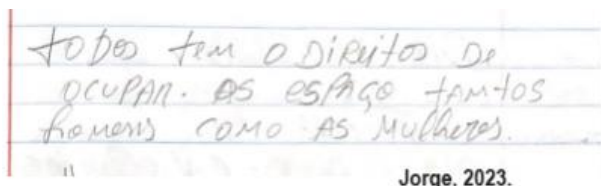 toDos tem o DiReitos De
OCUPAR. OS esPAÇo tAmtos
homens como AS mulheres.
"
Jorge, 2023.